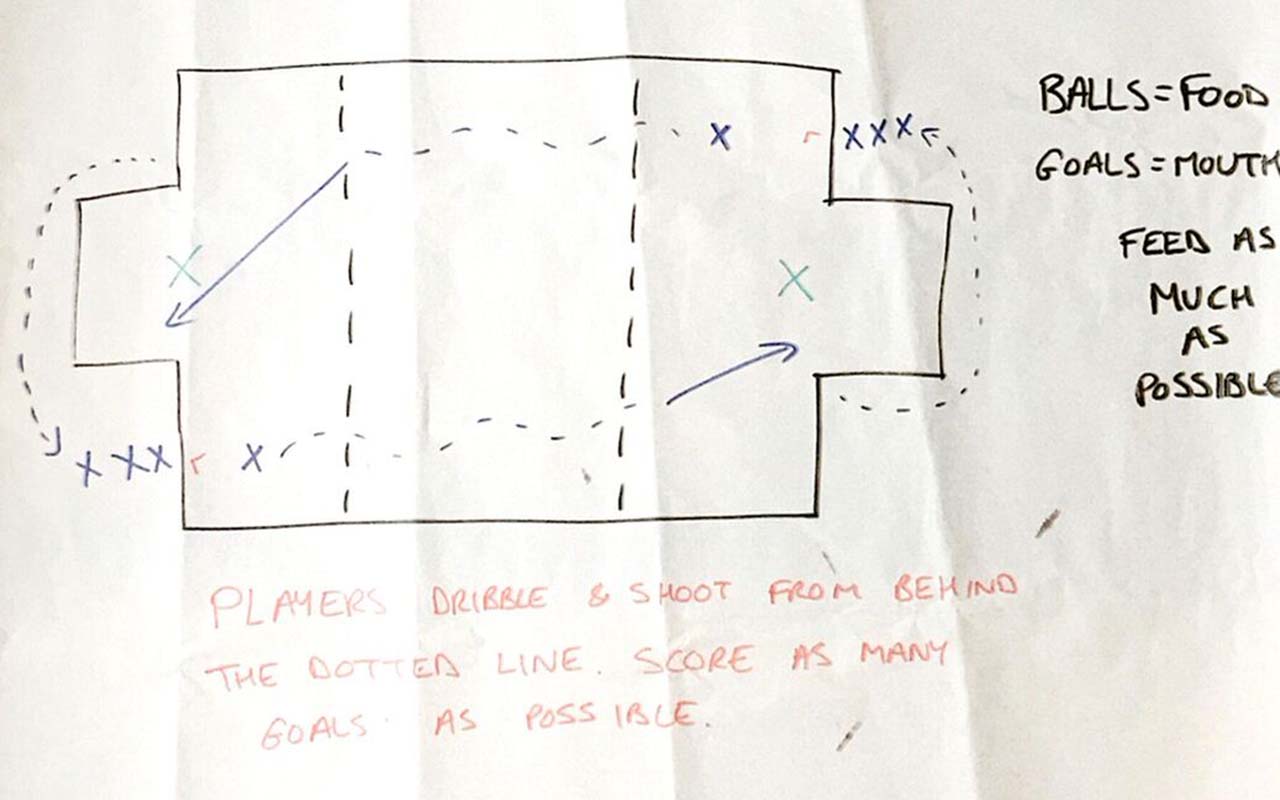 BALLS = FOOD
GOALS = MOUTH
FEED AS
MUCH
AS
POSSIBLE
X
XXX
X
X
X XX
X
PLAYERS DRIBBLE & SHOOT FROM BEHIND
THE DOTTED LINE. SCORE AS MANY
GOALS AS POSSIBLE.